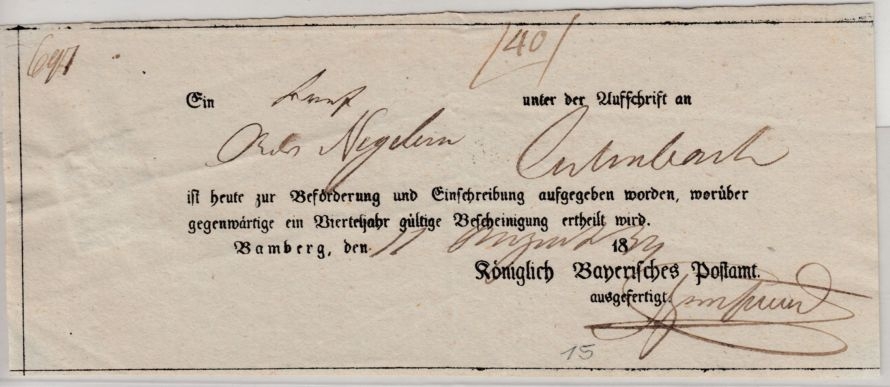 697
/40/
Ein Brief unter der Aufschrift an
Negelein Culmbach
ist heute zur Beförderung und Einschreibung aufgegeben worden, worüber
gegenwärtige ein Vierteljahr gültige Bescheinigung ertheilt wird.
Bamberg, den 11 August 18
Königlich Bayerisches Postamt.
ausgefertigt.
15